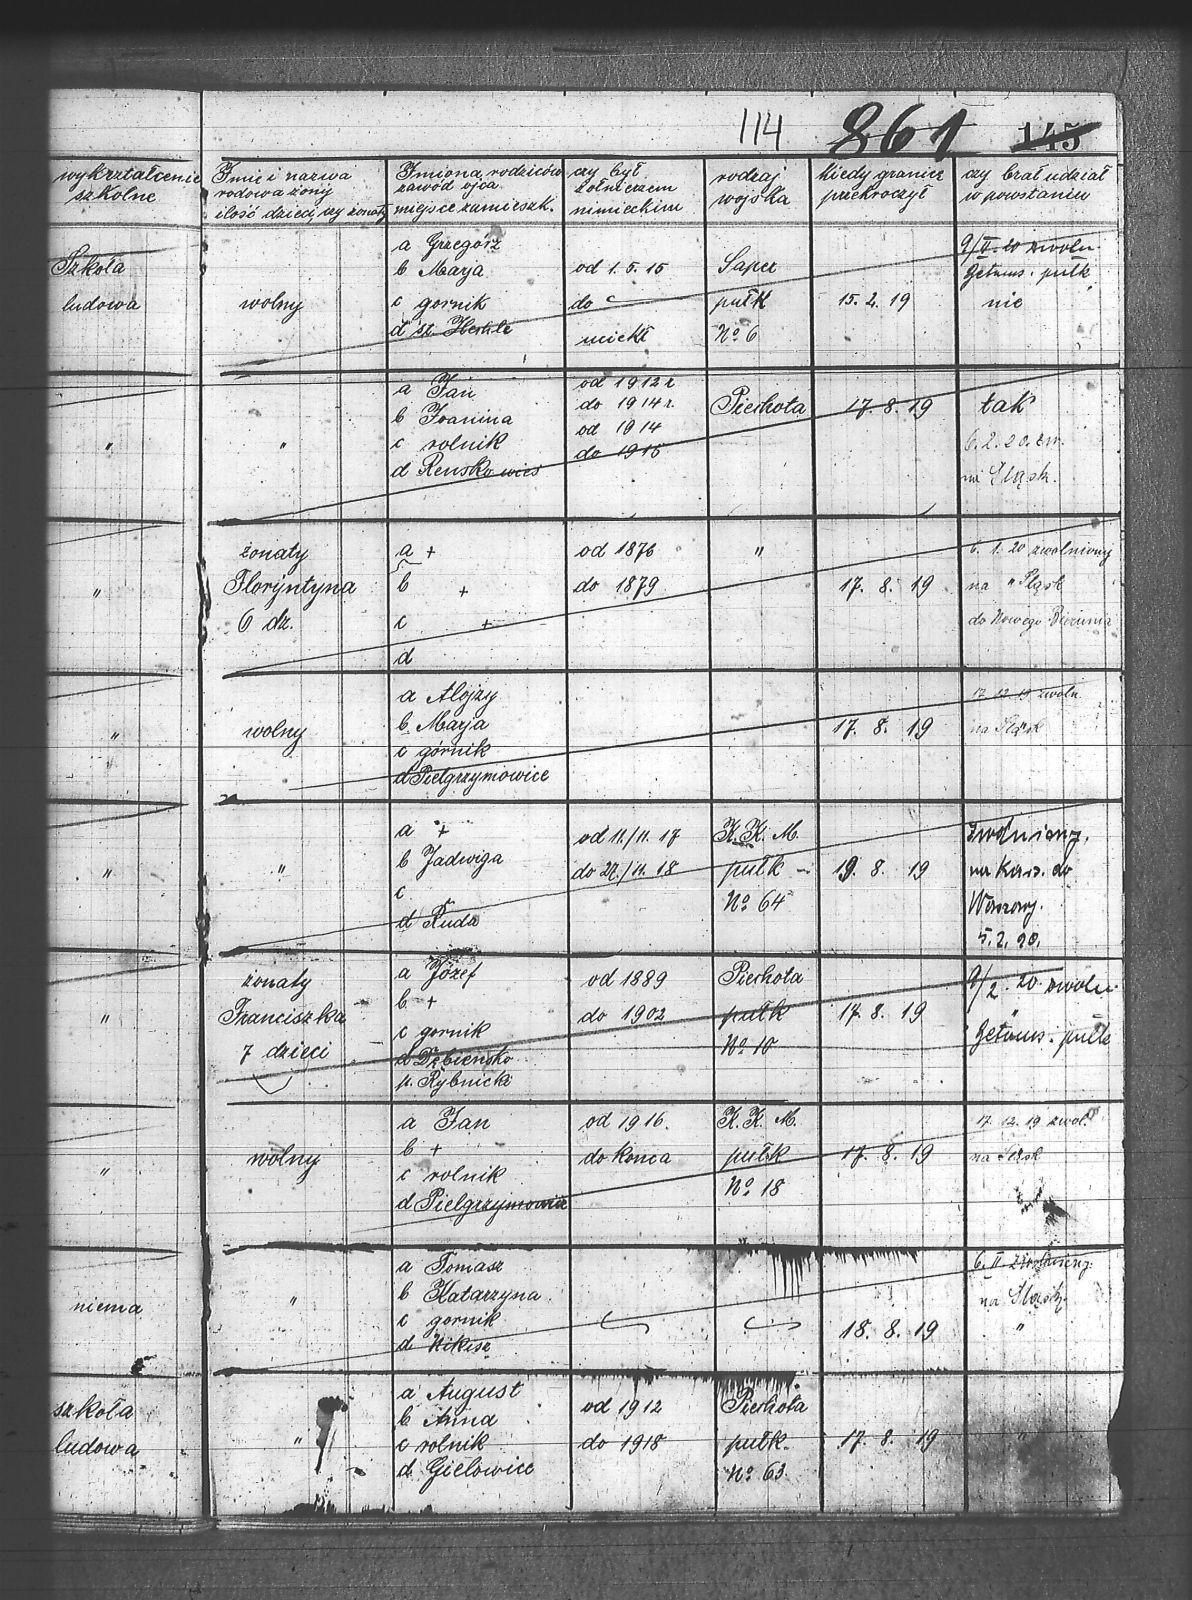 114 861 145
wykształcenie
szkolne
Imię i nazwa
rodowa żony
ilość dzieci, czy żonaty
Imiona rodziców
zawód ojca
miejsce zamieszk.
czy był
żołnierzem
niemieckim
rodzaj
wojska
kiedy granicę
przekroczył
czy brał udział
w powstaniu
Szkoła
ludowa
wolny
a Grzegórz
b Marja
c gornik
d
od 1.5.15
do
uciekł
Saper
pułk
No 6
15. 2. 19
9/II. 20 zwoln.
pułk
nie
"
"
a Jan
b Joanina
c rolnik
d
od 1912 r.
do 1914 r.
od 1914
do 1915
Piechota
17. 8. 19
tak
6. 2. 20. zw.
na Śląsk.
"
żonaty
Floryntyna
6 dz.
a +
b +
c +
d
od 1876
do 1879
"
17. 8. 19
6. 1. 20 zwolniony
na " Śląsk
do Nowego Bierunia
"
wolny
a Alojzy
b. Marja
c górnik
d Pielgrzymowice
17. 8. 19
17. 12. 19 zwoln.
na Śląsk
"
"
"
a +
b Jadwiga
c
d Ruda
od 11./11. 17
do 27./11. 18
K. K. M.
pułk
No 64
19. 8. 19
zwolniony.
na kurs. do
Warszawy.
5. 2. 20.
"
żonaty
Franciszka
7 dzieci
a Józef
b +
c gornik
d Dębieńsko
p. Rybnicki
od 1889
do 1902
Piechota
pułk
No 10
17. 8. 19
9/2. 20. zwoln.
"
pułk
"
wolny
a Jan
b +
c rolnik
d Pielgrzymowic
od 1916.
do konca
K. K. M.
pułk
No 18
17. 8. 19
17. 12. 19 zwol.
na Śląsk
niema
"
a Tomasz
b Katarzyna
c gornik
d Nikisz
18. 8. 19
6. II. zwolniony.
na Śląsk.
"
szkoła
ludowa
"
a August
b Anna
c rolnik
d Gielowice
od 1912
do 1918
Piechota
pułk.
No 63
17. 8. 19
"